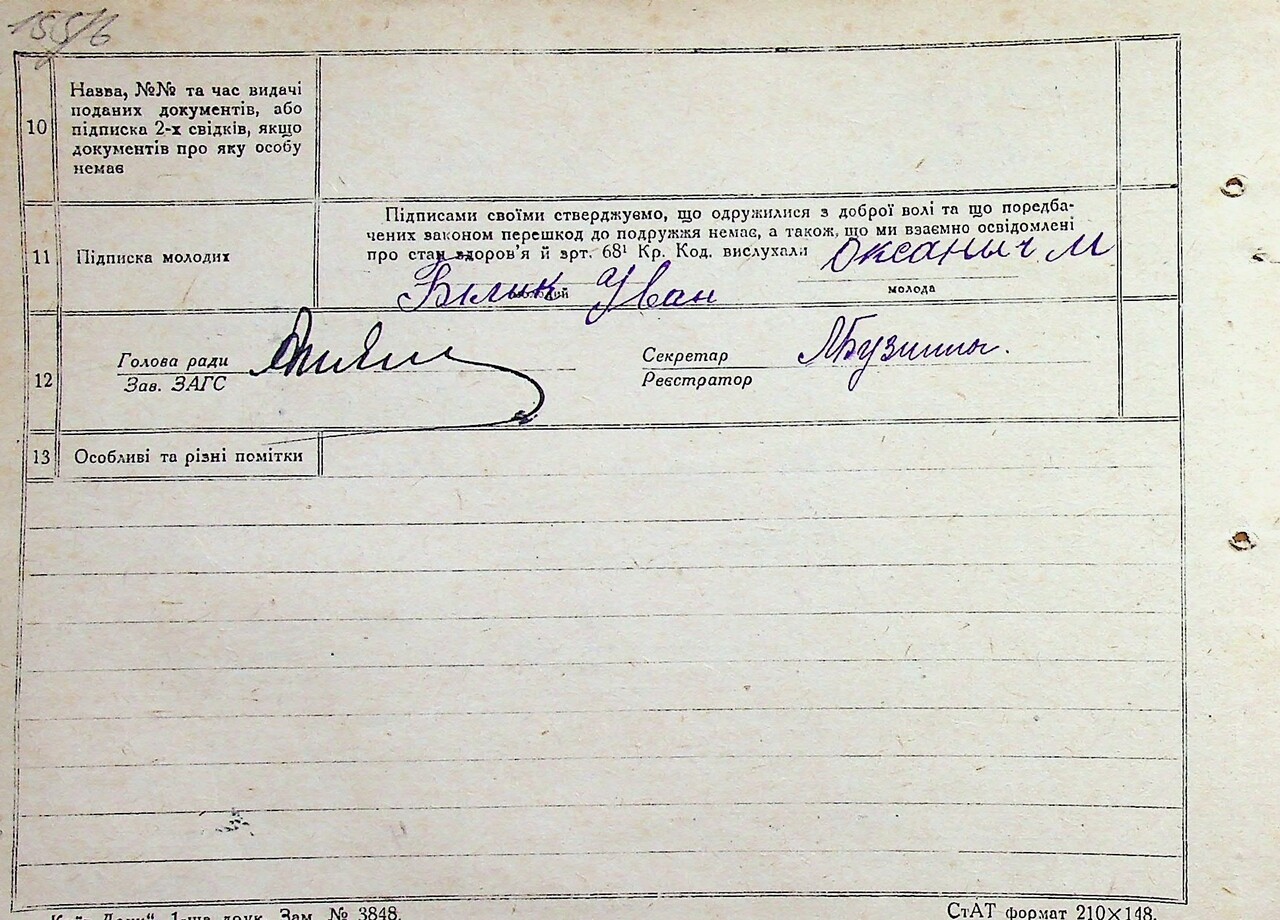 155/6
10
Назва, №№ та час видачі
поданих документів, або
підписка 2-х свідків, якщо
документів про яку особу
немає
11
Підписка молодих
Підписами своїми стверджуємо, що одружилися з доброї волі та що поредба-
чених законом перешкод до подружжя немає, а також, що ми взаємно освідомлені
про стан здоров'я й арт. 68¹ Кр. Код. вислухали
Оксанич. М
Белик Иван
молодий
молода
12
Голова ради
Зав. ЗАГС
Секретар
Реєстратор
13
Особливі та різні помітки
1-ша друк. Зам. № 3848.
СтАТ формат 210×148.